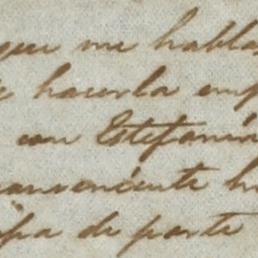 que me habla
hacerla emp
con Estefaní
conveniente h
de parte